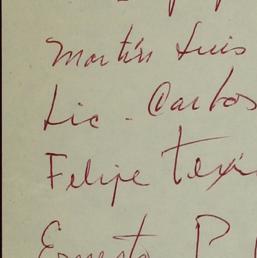 Martín Luis
Lic. Carlos
Felipe
Ernesto P.